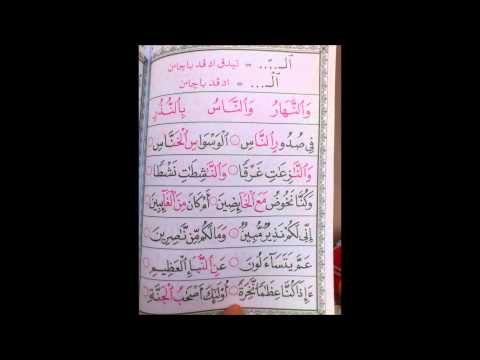 الّـ... = تيدق اد قد باچائن
الْـ... = اد قد باچائن
وَالنَّهَارُ وَالنَّاسُ بِالنُّذُرِ
فِي صُدُورِ النَّاسِ ○ الْوَسْوَاسِ الْخَنَّاسِ
وَالنَّزِعَاتِ غَرْقًا ○ وَالنَّاشِطَاتِ نَشْطًا
وَكُنَّا نَخُوضُ مَعَ الْخَائِضِينَ ○ أَوْ كَانَ مِنَ الْغَائِبِينَ
إِنِّي لَكُمْ نَذِيرٌ مُّبِينٌ ○ وَمَا لَكُمْ مِّنْ نَّاصِرِينَ
عَمَّ يَتَسَاءَلُونَ ○ عَنِ النَّبَإِ الْعَظِيمِ
ءَإِذَا كُنَّا عِظَامًا نَّخِرَةً ○ أُولَٰئِكَ أَصْحَابُ الْجَنَّةِ